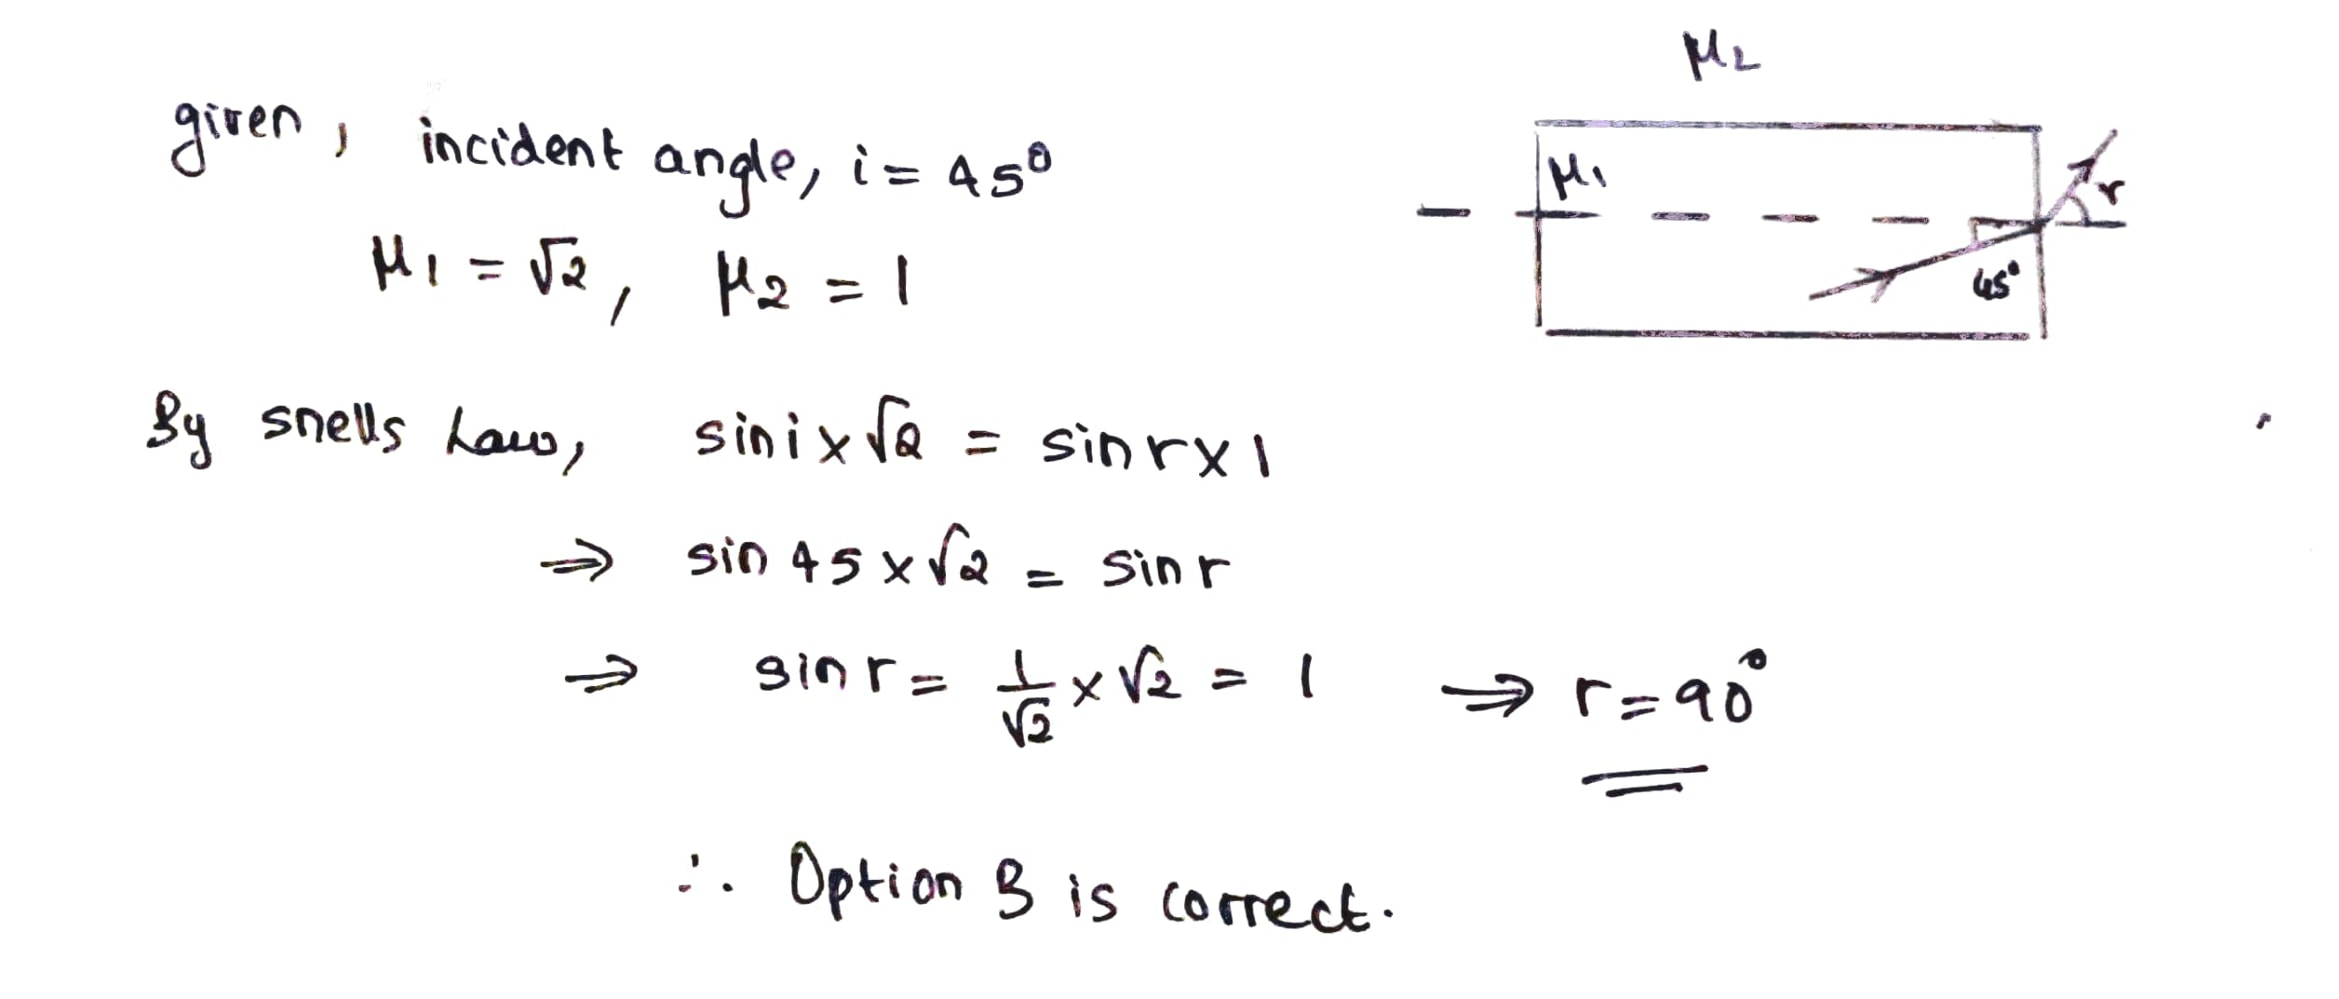 given, incident angle, i = 45°
μ₁ = √2, μ₂ = 1
μ₂
μ₁
r
45°
By snells Law, sin i x √2 = sin r x 1
⇒ sin 45 x √2 = sin r
⇒ sin r = 1/√2 x √2 = 1 ⇒ r = 90°
∴ Option B is correct.